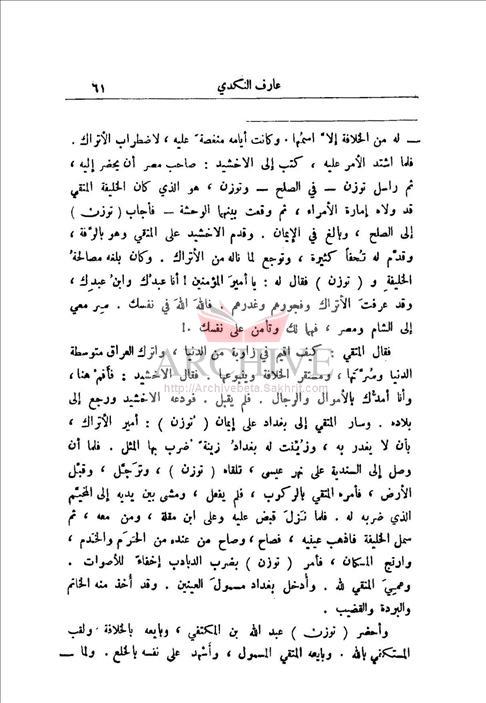 عارف النكدي
٦١
ــ له من الخلافة إلا اسمُها . وكانت أيامه منغصة عليه ، لاضطراب الأتراك .
فلما اشتد الأمر عليه ، كتب إلى الاخشيد : صاحب مصر أن يحضر إليه ،
ثم راسل توزن ــ في الصلح ــ وتوزن ، هو الذي كان الخليفة المتقي
قد ولاه إمارة الأمراء ، ثم وقعت بينهما الوحشة ــ فأجاب ( توزن )
إلى الصلح ، وبالغ في الإيمان . وقدم الاخشيد على المتقي وهو بالرقة ،
وقدّم له تُحفاً كثيرة ، وتوجع لما ناله من الأتراك . وكان بلغه مصالحةُ
الخليفة و ( توزن ) فقال له : يا أميرَ المؤمنين ! أنا عبدُك وابنُ عبدِك ،
وقد عرفتَ الأتراك وفجورهم وغدرهم . فاللهَ اللهَ في نفسك . سِر معي
إلى الشام ومصر ، فهما لك وتأمن على نفسك . !
فقال المتقي : كيف اقيم في زاوية من الدنيا ، واترك العراق متوسطة
الدنيا وسُرّتها ، ومستقر الخلافة وينبوعها . فقال الاخشيد : فأقم هنا ،
وأنا أمدُّك بالأموال والرجال . فلم يقبل . فودعه الاخشيد ورجع إلى
بلاده . وسار المتقي إلى بغداد على إيمان ( توزن ) : أمير الأتراك ،
بأن لا يغدر به ، وزُيّنت له بغدادُ زينة ضرب بها المثل . فلما أن
وصل إلى السندية على نهر عيسى ، تلقاه ( توزن ) ، وترَجّل ، وقبّل
الأرض ، فأمره المتقي بالركوب ، فلم يفعل ، ومشى بين يديه إلى المخيّم
الذي ضربه له . فلما نزل قبض عليه وعلى ابن مقلة ، ومن معه ، ثم
سمل الخليفة فاذهب عينيه ، فصاح ، وصاح من عنده من الحُرَم والخدم ،
وارتج المكان ، فأمر ( توزن ) بضرب الدبادب إخفاءً للأصوات .
وعميَ المتقي لله . وأُدخل بغداد مسمولَ العينين . وقد أُخذ منه الخاتم
والبردة والقضيب .
وأحضر ( توزن ) عبد الله بن المكتفي ، وبايعه بالخلافة ولقب
المستكفي بالله . وبايعه المتقي المسمول ، وأشهد على نفسه بالخلع . ولما ــ
ARCHIVE
http://Archivebeta.Sakhrit.com